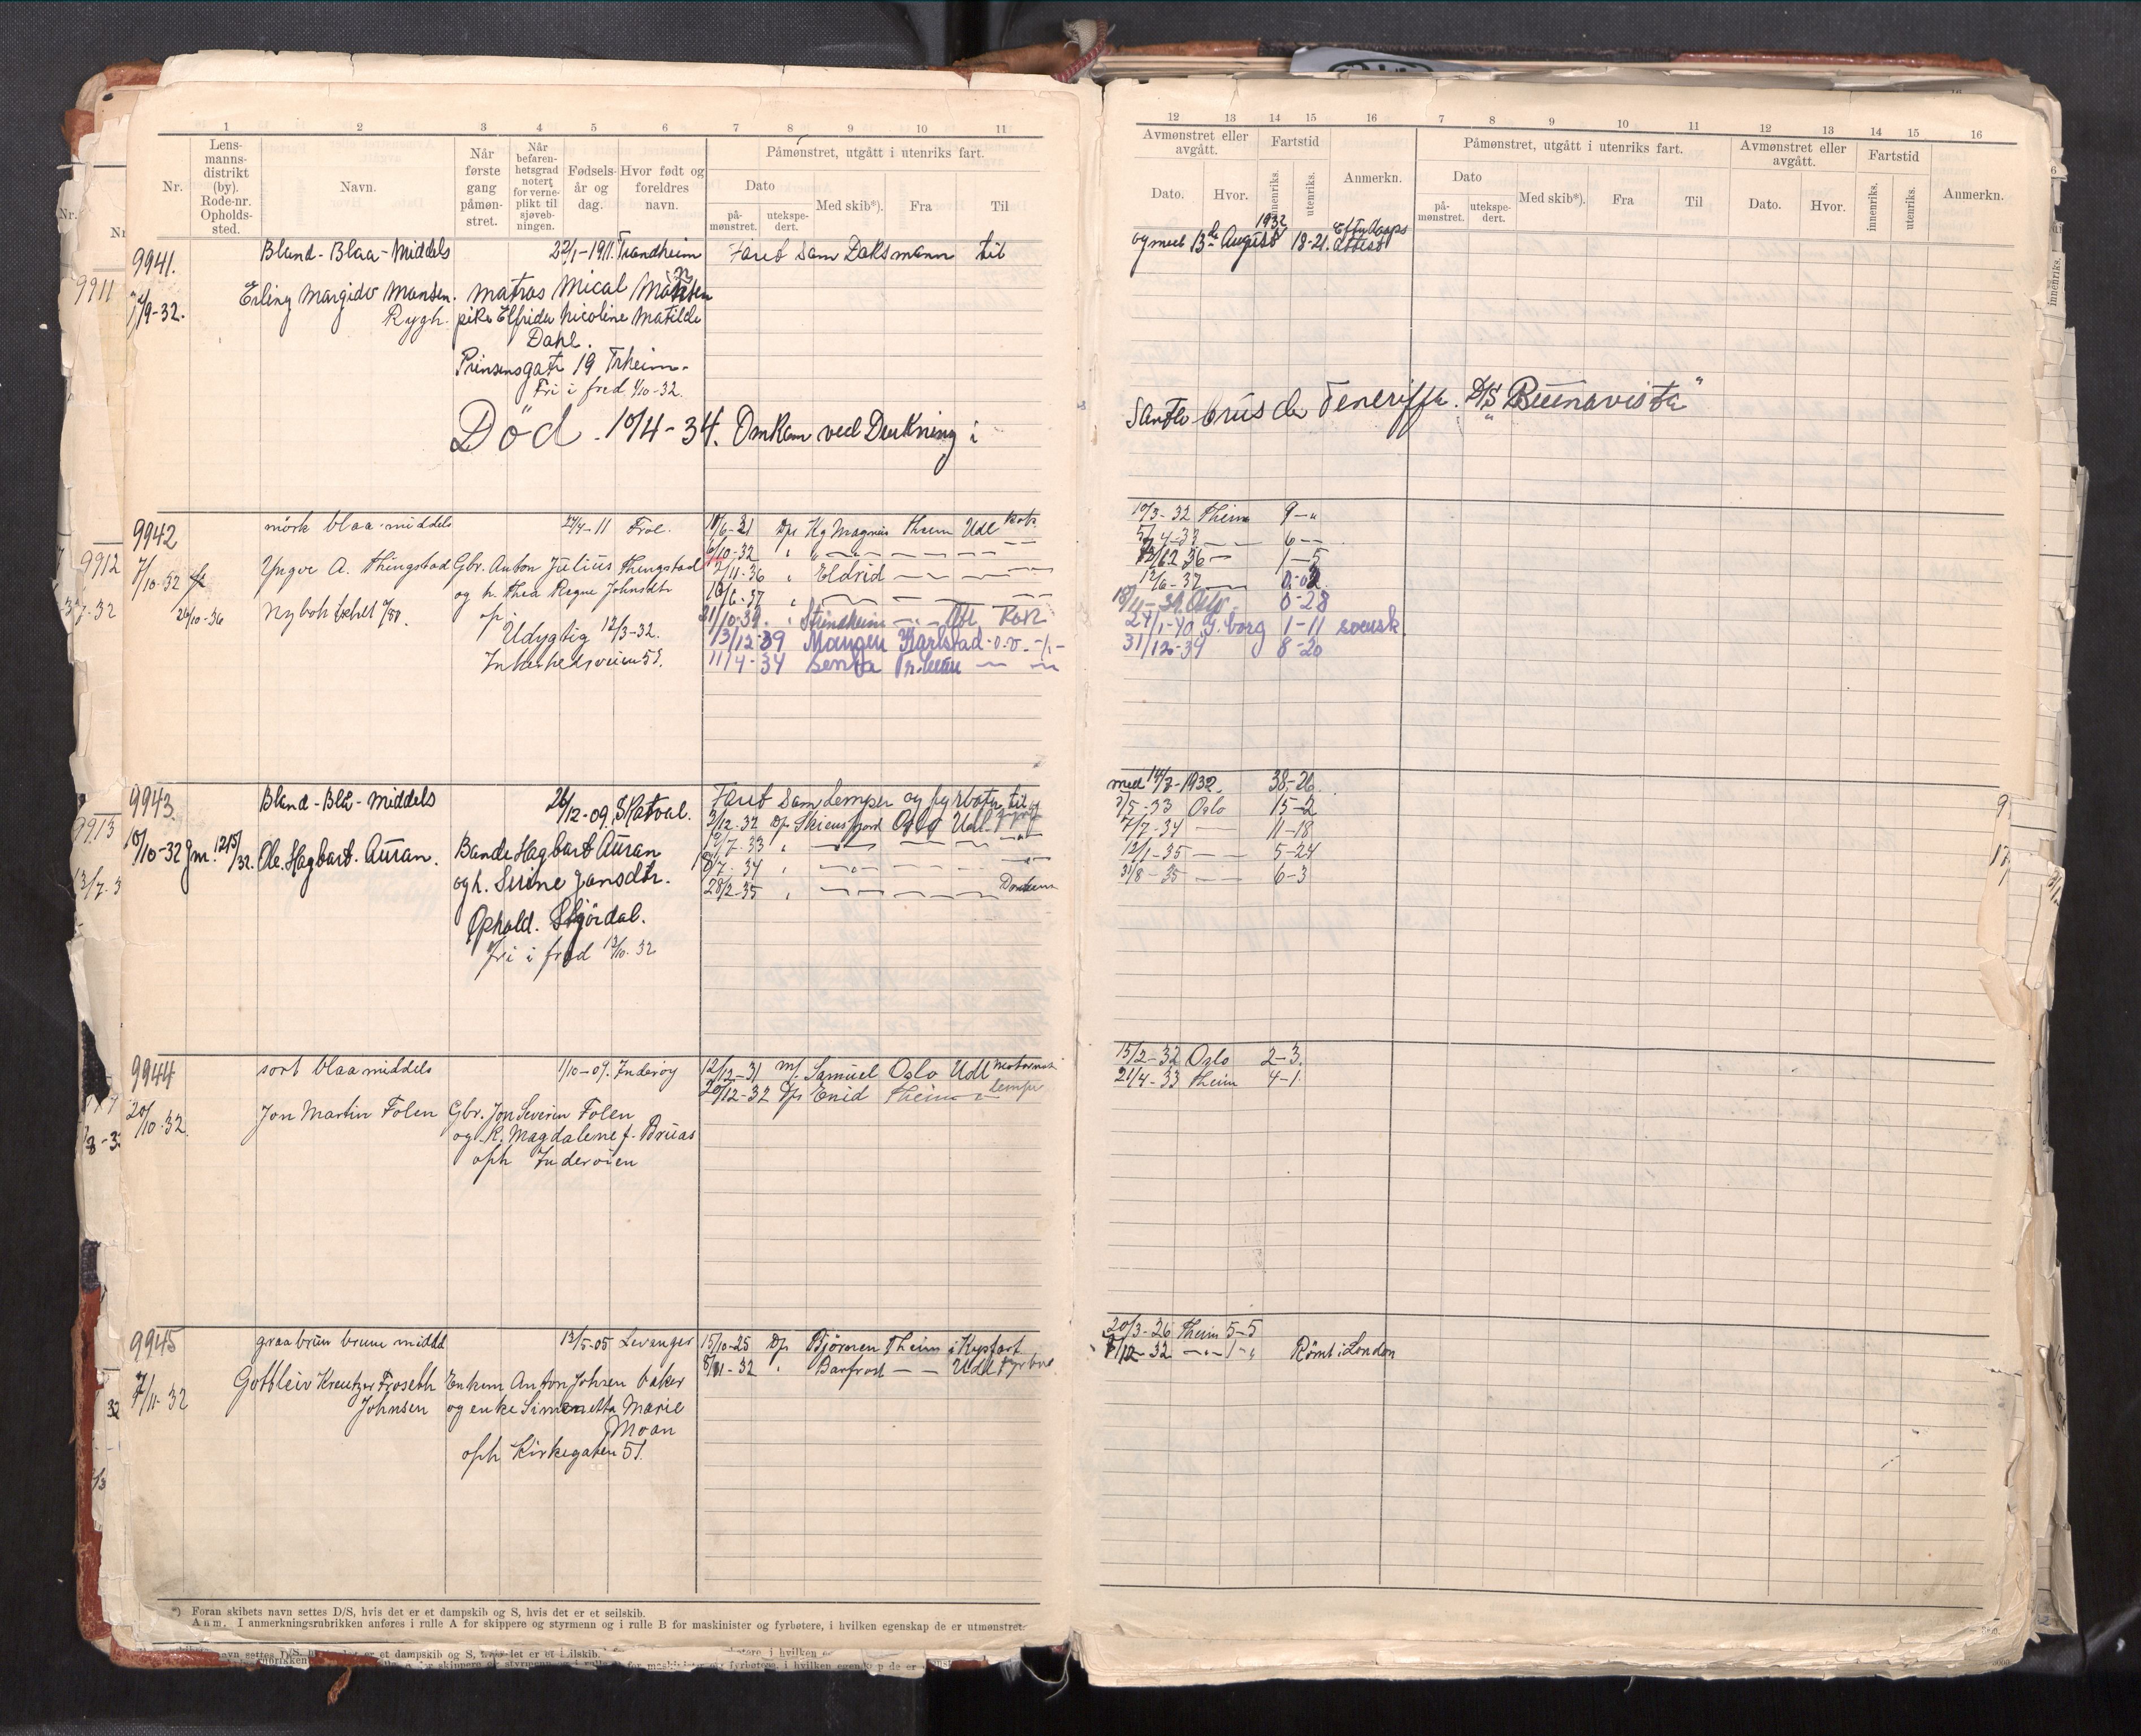 1 2 3 4 5 6 7 8 9 10 11
Nr.
Lens-
manns-
distrikt
(by).
Rode-nr.
Opholds-
sted.
Navn.
Når
første
gang
påmøn-
stret.
Når
befaren-
hetsgrad
notert
for verne-
plikt til
sjøveb-
ningen.
Fødsels-
år og
dag.
Hvor født og
foreldres
navn.
Påmønstret, utgått i utenriks fart.
Dato
på-
mønstret.
utekspe-
dert.
Med skib*).
Fra
Til
12 13 14 15 16 7 8 9 10 11 12 13 14 15 16
Avmønstret eller
avgått.
Dato.
Hvor.
Fartstid
innenriks.
utenriks.
Anmerkn.
Påmønstret, utgått i utenriks fart.
Dato
på-
mønstret.
utekspe-
dert.
Med skib*).
Fra
Til
Avmønstret eller
avgått.
Dato.
Hvor.
Fartstid
innenriks.
utenriks.
Anmerkn.
9941. Blond - Blaa - Middels 22/1-1911. Trondheim Farit som Daksmann til
og med 13de August 1932 18-21. attest
9/9-32. Erling Margido Monsen. Matros Mical Monsen
Rygh. pike Elfrida Nicoline Matilde
Dahl.
Prinsensgate 19 Trheim.
Fri i fred 1/10-32.
Död. 10/4-34. Omkom ved Drukning i
Santa Crus de Teneriffa. D/S "Buenavista"
9942 mörk blaa middels 27/4-11 Frol. 10/6-31 D/s Kg Magnus Them Udl kok
10/3-32 Them 9-"
7/10-32 Yngve A. Thingstad Gbr. Anton Julius Thingstad
6/10-32 " — — —
5/4-33 — 6-
26/10-36 og h. Thea Regne Johnsdtr
2/11-36 " Eldrid — — —
12/12 36 — 1-5
Udygtig 12/3-32.
12/6-37 —
31/10-39. " Steinsheim — Udl Kok
18/11-39. Oslo 0-28
13/12-39 Mangen Karlstad
24/1-40 G.borg 1-11 svensk
11/4-34 Senta
31/12-34 8-20
9943. Blond - Blå - Middels 26/12-09. Skatval. Farit som Lemper og fyrböter til
med 14/7-1932. 38-26.
10/10-32 Ole Hagbart Auran. Bande Hagbart Auran
2/12-32 D/s Skiensfjord Oslo Udl
3/5-33 Oslo 15-2
12/7-33 " — — —
7/7-34 — 11-18
og h. Serine Jonsdtr.
8/7-34 " — — —
12/1-35 — 5-24
28/2-35 " — — —
31/8-35 — 6-3
Ophold. Stjördal.
fri i fred 13/10.32
9944 sort blaa middels 1/10-09. Inderöy 12/12-31 m/s Samuel Oslo Udl
15/2-32 Oslo 2-3.
20/12-32 D/s Enid Theim — lemper
21/4-33 Theim 4-1
20/10-32. Jon Martin Folen Gbr. Jon Severin Folen
og k. Magdalene f. Bruas
oph Inderöien
9945 graabrun brune middel 13/5-05 Levanger 15/10-25 D/s Björnen Theim i Kystfart
20/3-26 Theim 5-5
8/11-32 " Barfrod — — Udl fyrböt
8/12-32 — 1-" Römt i London
7/11-32 Gottleiv Kreutzer Froseth Enkem Anton Johsen baker
Johnsen og enke Simonetta Marie
Moan
oph Kirkegaten 51.
*) Foran skibets navn settes D/S, hvis det er et dampskib og S, hvis det er et seilskib.
Anm. I anmerkningsrubrikken anføres i rulle A for skippere og styrmenn og i rulle B for maskinister og fyrbøtere, i hvilken egenskap de er utmønstret.